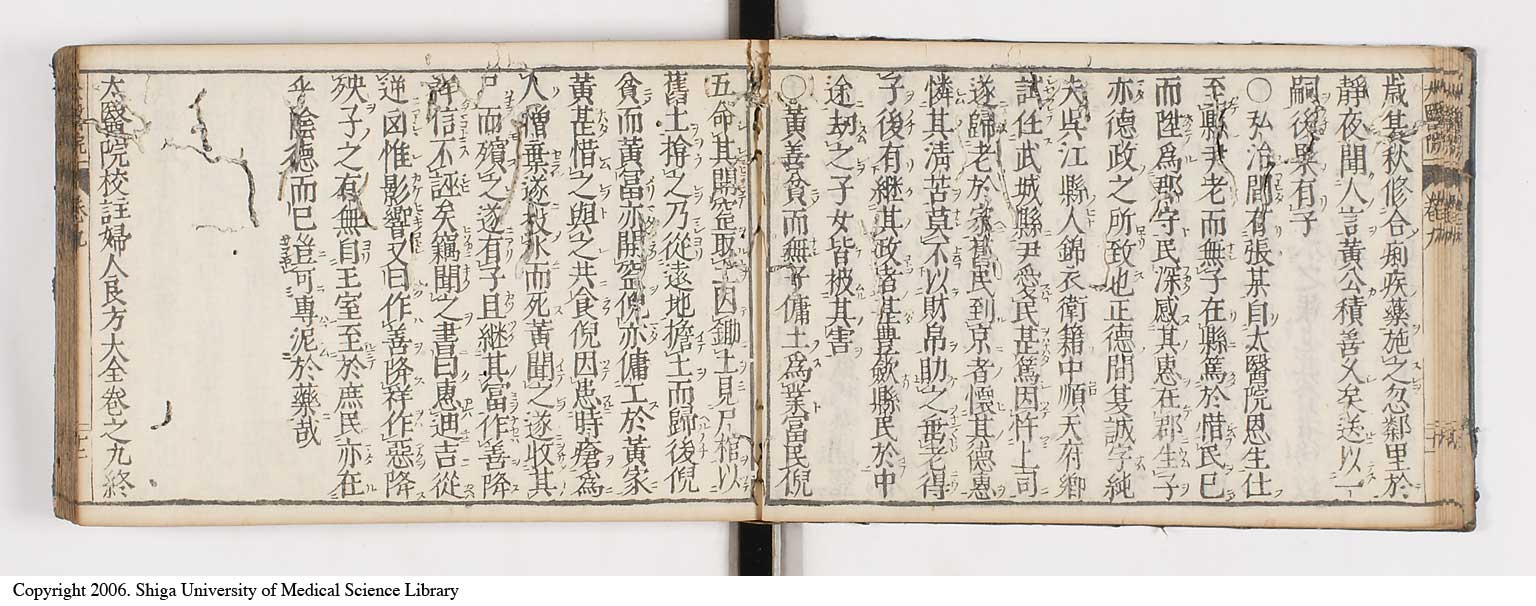 歳其秋修合痢疾藥施之忽鄰里於
靜夜聞人言黃公積善久矣送以一
嗣後果有子
〇弘治間有張某自太醫院恩生仕
至縣尹老而無子在縣篤於惜民已
而陞爲郡守民深感其惠在郡生子
亦德政之所致也正德間某誠字純
夫吳江縣人錦衣衛籍中順天府鄉
試任武城縣尹愛民甚篤因忤上司
遂歸老於家舊民到京者懷其德惠
憐其淸苦莫不以財帛助之垂老得
子後有継其政者甚豊歛縣民於中
途刼之子女皆被其害
〇黃善貧而無子傭土爲業富民倪
五命其開窖取土因鋤土見尸棺以
舊土揜之乃從遠地擔土而歸後倪
貧而黃富亦開窖倪亦傭工於黃家
黃甚惜之與之共食倪因患時瘡爲
人憎棄遂投水而死黃聞之遂收其
尸而殯之遂有子且継其富作善降
祥信不誣矣竊聞之書曰惠迪吉從
逆凶惟影響又曰作善降祥作惡降
殃子之有無自王室至於庶民亦在
乎陰德而已豈可專泥於藥哉
太醫院校註婦人良方大全卷之九終
Copyright 2006. Shiga University of Medical Science Library